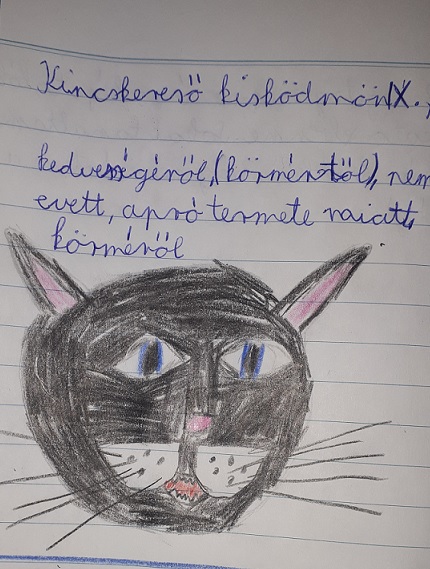 Kincskereső kisködmön IX.
kedvességéről, (körméről), nem
evett, apró termete miatt,
körméről